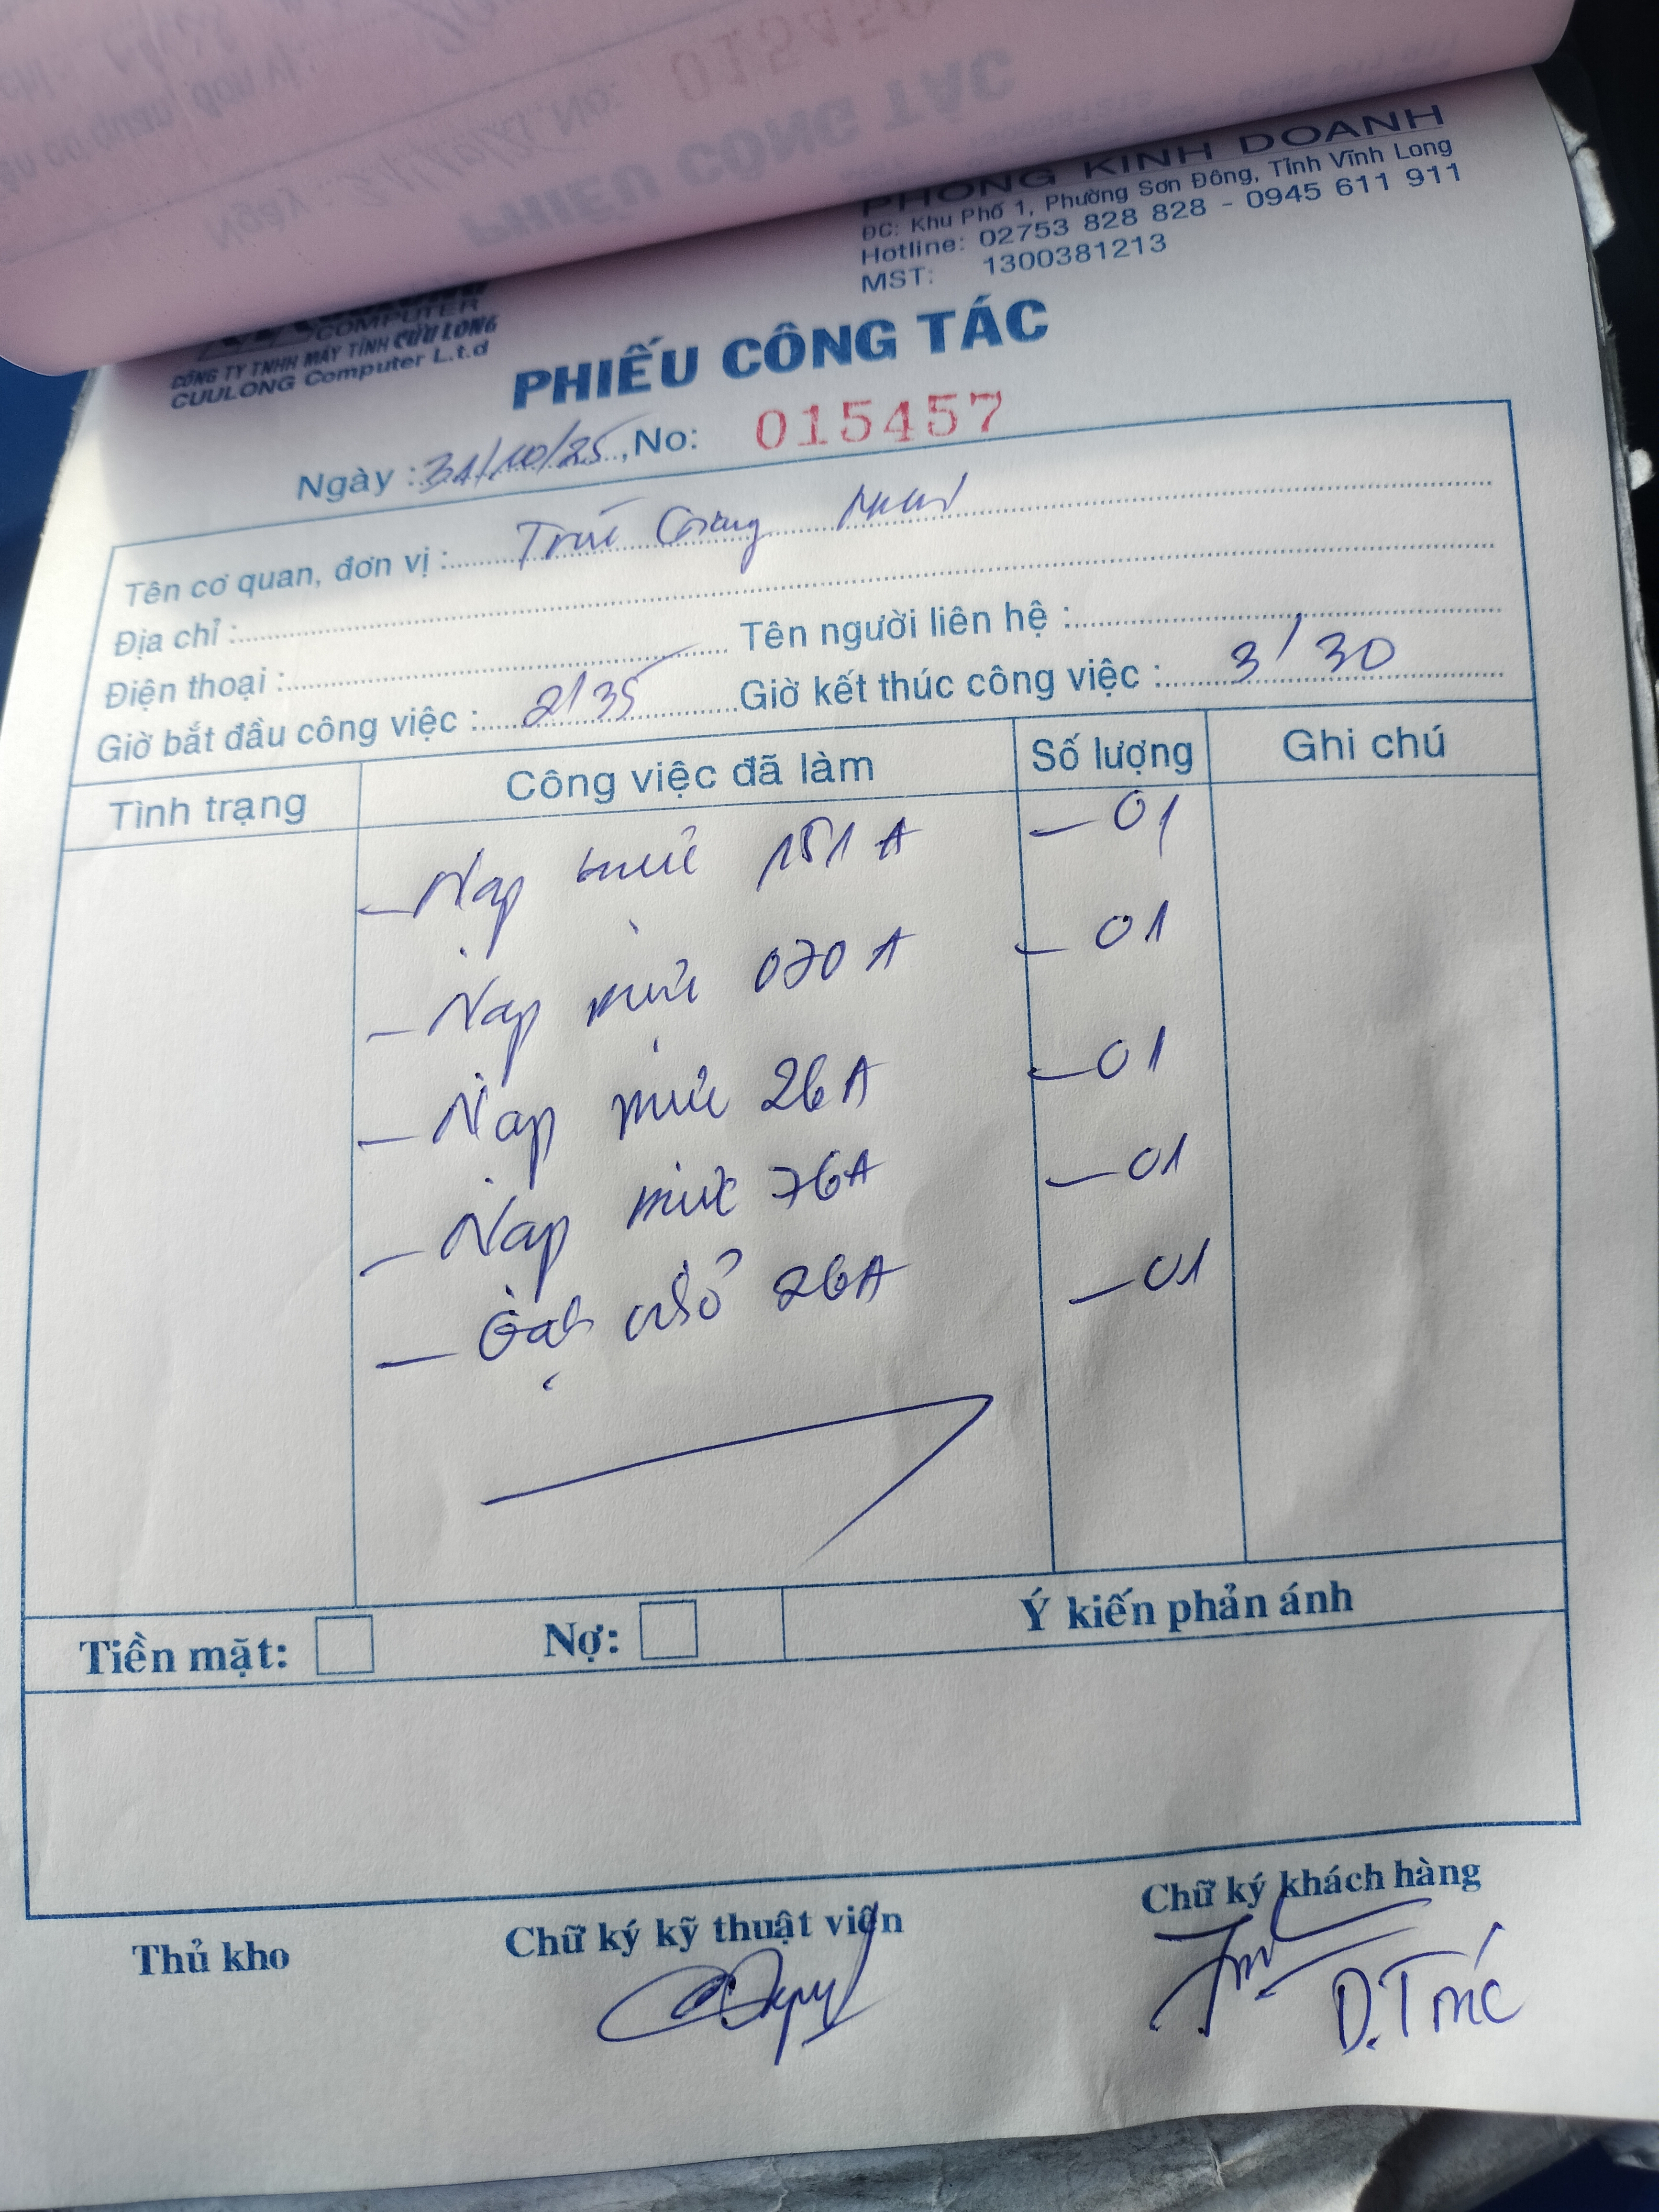 PHÒNG KINH DOANH
ĐC: Khu Phố 1, Phường Sơn Đông, Tỉnh Vĩnh Long
Hotline: 02753 828 828 - 0945 611 911
MST: 1300381213
COMPUTER
CÔNG TY TNHH MÁY TÍNH CỬU LONG
CUULONG Computer L.t.d
PHIẾU CÔNG TÁC
Ngày : 31/10/25, No: 015457
Tên cơ quan, đơn vị : Trúc Giang
Địa chỉ :
Điện thoại : Tên người liên hệ :
Giờ bắt đầu công việc : 2/35 Giờ kết thúc công việc : 3/30
Tình trạng Công việc đã làm Số lượng Ghi chú
- Nạp mực 151A - 01
- Nạp mực 070A - 01
- Nạp mực 26A - 01
- Nạp mực 76A - 01
- Gạt nhỏ 26A - 01
Tiền mặt: Nợ: Ý kiến phản ánh
Thủ kho Chữ ký kỹ thuật viên Chữ ký khách hàng
D.Trúc